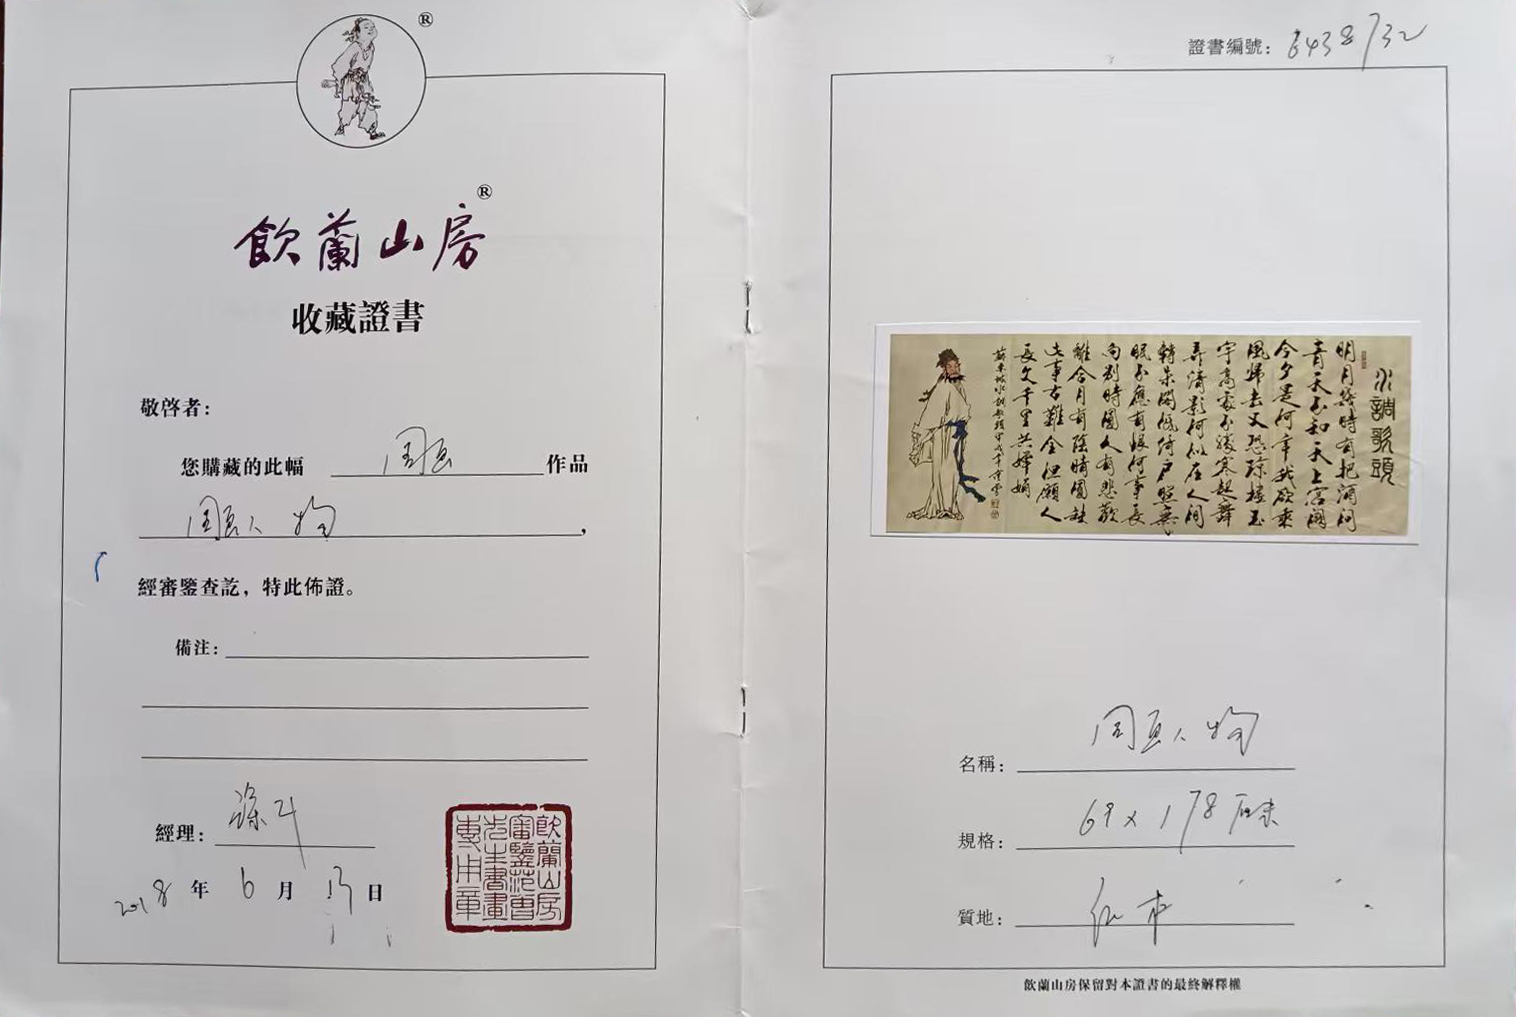 ®
飲蘭山房®
收藏證書
敬啓者：
您購藏的此幅 作品
人物，
經審鑒查訖，特此佈證。
備注：
經理：
2018年6月 日
飲蘭山房
審鑒范曾
先生書畫
專用章
證書編號：
水調歌頭
明月幾時有把酒問
青天不知天上宮闕
今夕是何年我欲乘
風歸去又恐瓊樓玉
宇高處不勝寒起舞
弄清影何似在人間
轉朱閣低綺戶照無
眠不應有恨何事長
向別時圓人有悲歡
離合月有陰晴圓缺
此事古難全但願人
長久千里共嬋娟
名稱： 人物
規格： 69×178厘米
質地： 紙本
飲蘭山房保留對本證書的最終解釋權